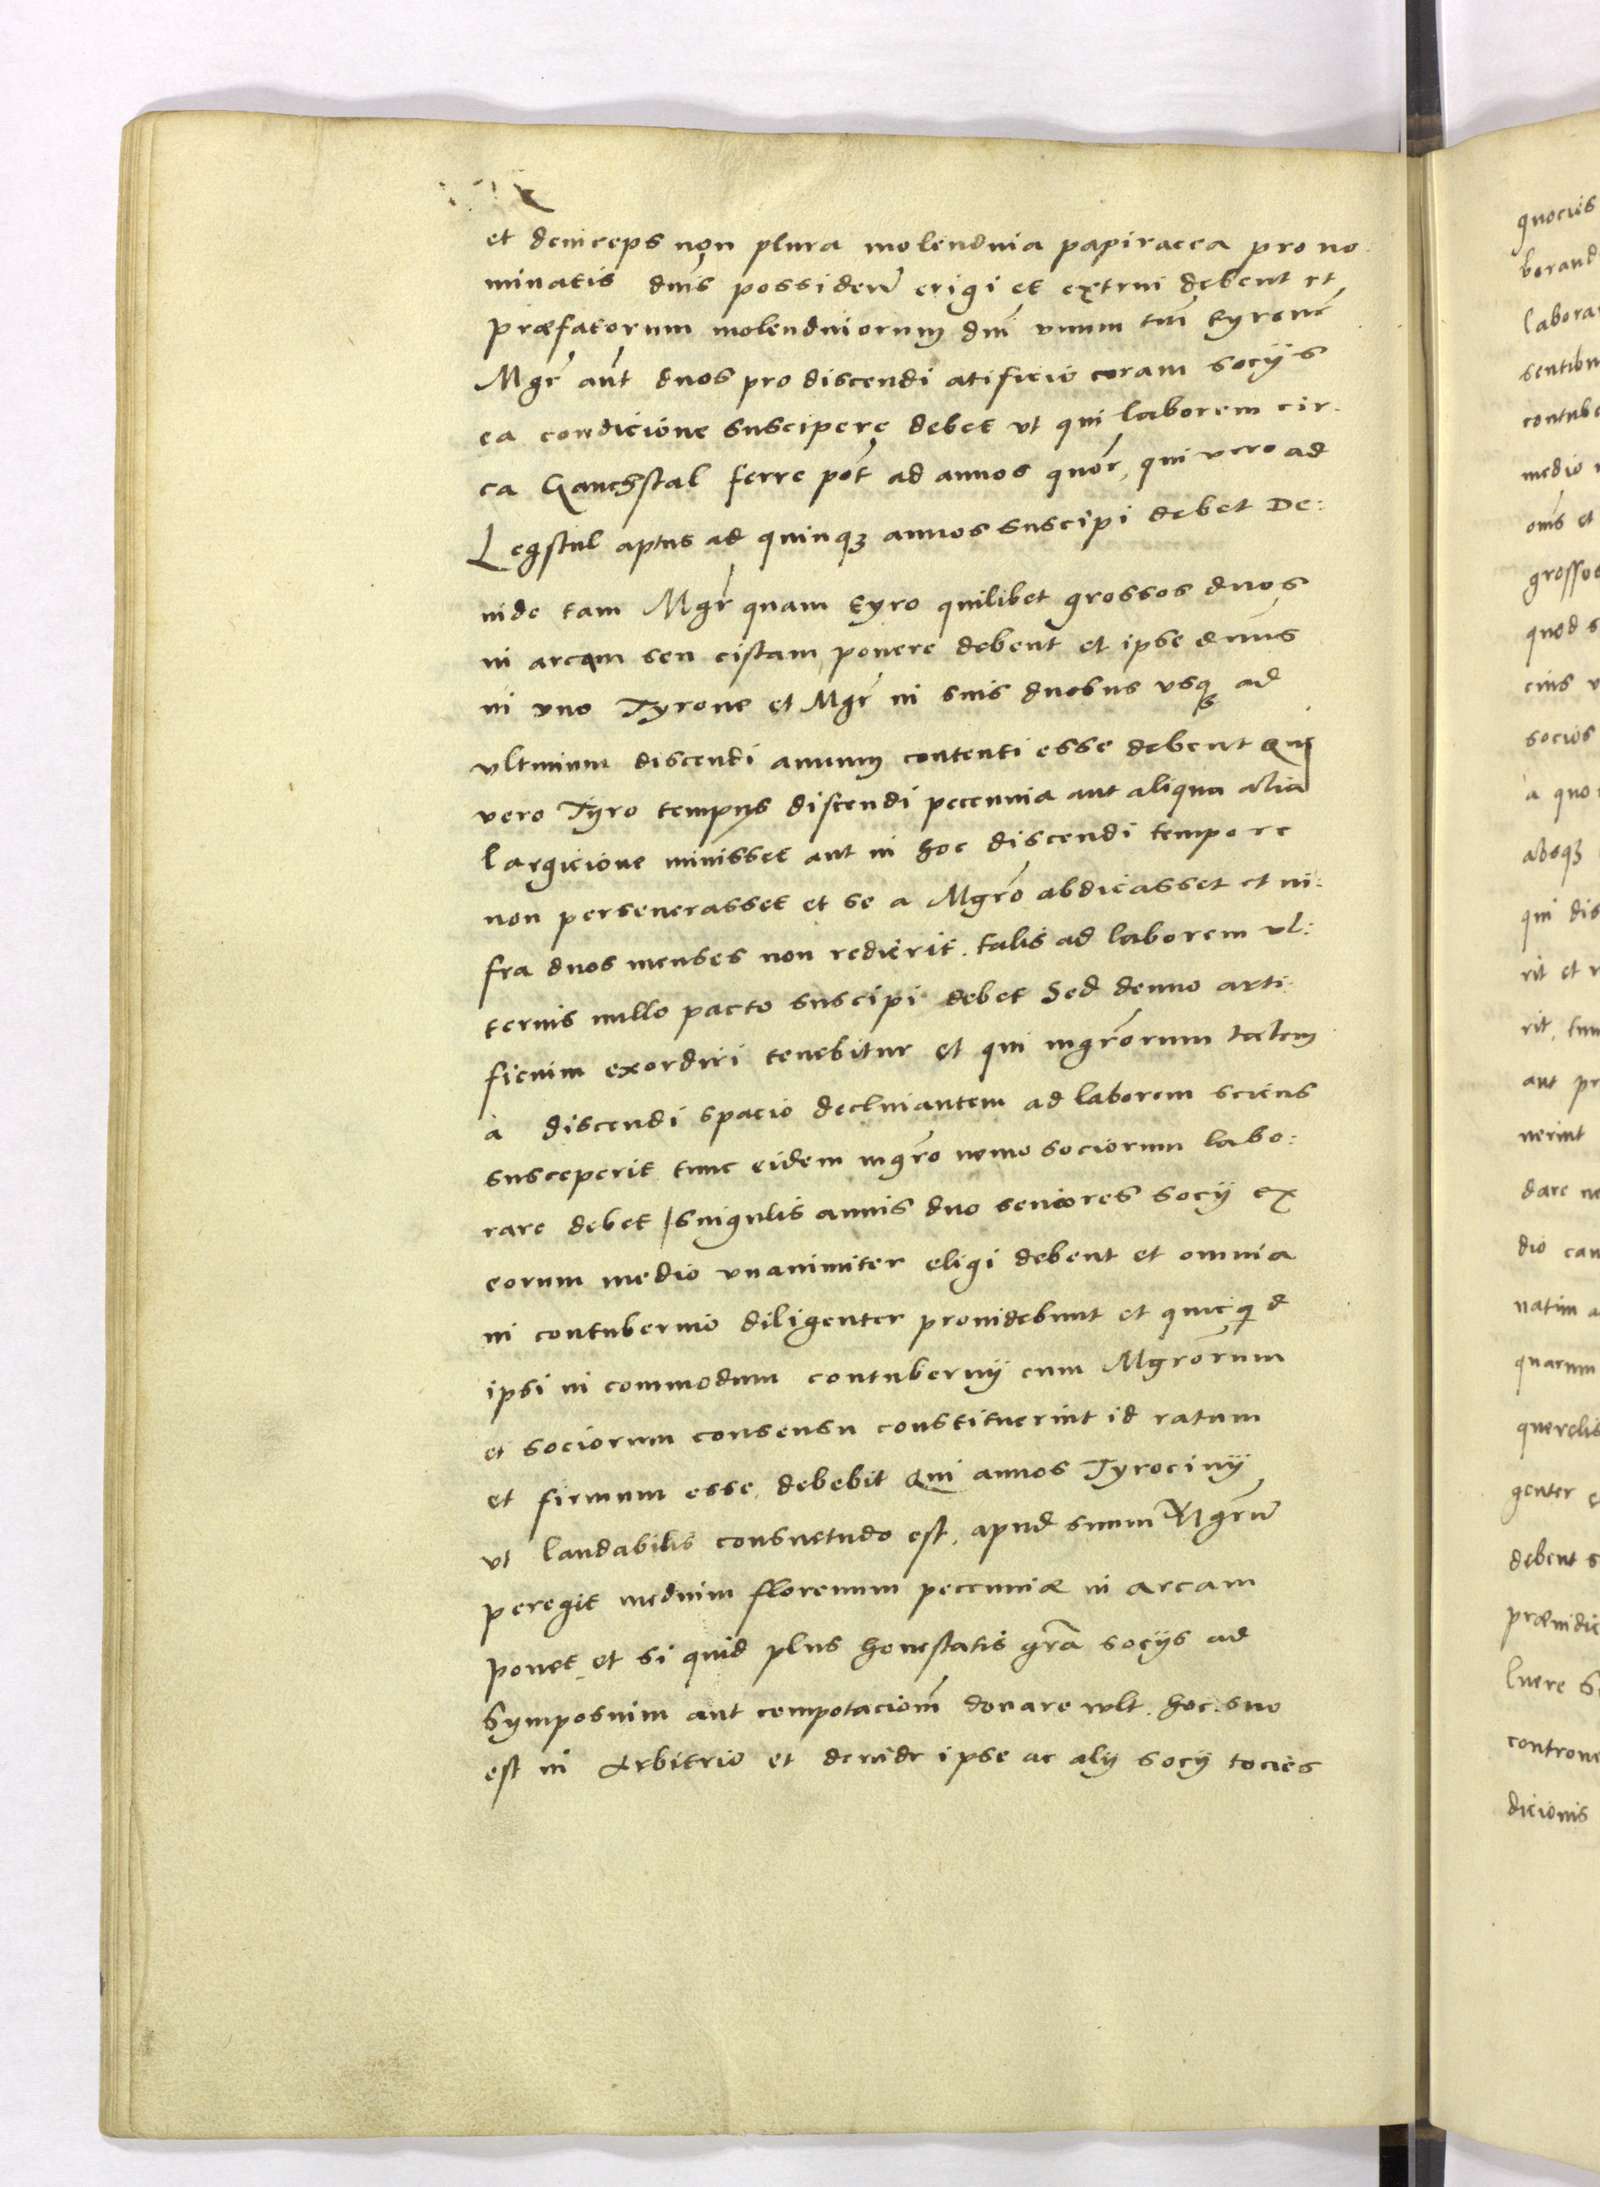 et deinceps non plura molendina papiracea pro no
minatis dnis possideri erigi et extrui debent et
præfatorum molendinorum dni vnum tm tyronē
Mgrī aut duos pro discendi atificio coram socijs
ea condicione suscipere debet vt qui laborem cir.
ca ferre pōt ad annos quōr, qui vero ad
Legstul aptus ad quinqȝ annos suscipi debet De:
inde tam Mgr̄ quam tyro quilibet grossos duos
in arcam seu cistam ponere debent et ipse dnūs
in vno Tyrone et Mgr̄ in suis duobus vsqȝ ad
vltimum discendi annum contenti esse debent Qui
vero Tyro tempus discendi pecunnia aut aliqua alia
largicione minisset aut in hoc discendi tempore
non perseuerasset et se a Mgrō abdicasset et in:
fra duos menses non redierit. talis ad laborem vl:
terius nullo pacto suscipi debet Sed denuo arti
ficium exordiri tenebitur et qui mgrōrum talem
à discendi spacio decliniantem ad laborem sciens
susceperit tunc eidem mgrō nemo sociorum labo:
rare debet / singulis annis duo seniores socij ex
eorum medio vnanimiter eligi debent et omnia
in contubernio diligenter prouidebunt et quicqͥd
ipsi in commodum contubernij cum Mgrōrum
et sociorum consensu constituerint id ratum
et firmum esse debebit Qui annos Tyrocinij
vt laudabilis consuetudo est, apud suum Mgrū
peregit medium florenum pecunniæ in arcam
ponet et si quid plus honestatis grā socijs ad
Symposium aut compotacionē donare vult. hoc suo
est in Arbitrio et deinde ipse ac alij socij tocies
quocies
laborar
medio
et
grossos
quod s
eius v
socios
à quo
absqȝ
qui dis
rit et
rit, tun
aut pr
uerint
dare
dio cau
natim a
quarum
querelis
genter
debent s
luere
controue
dicionis